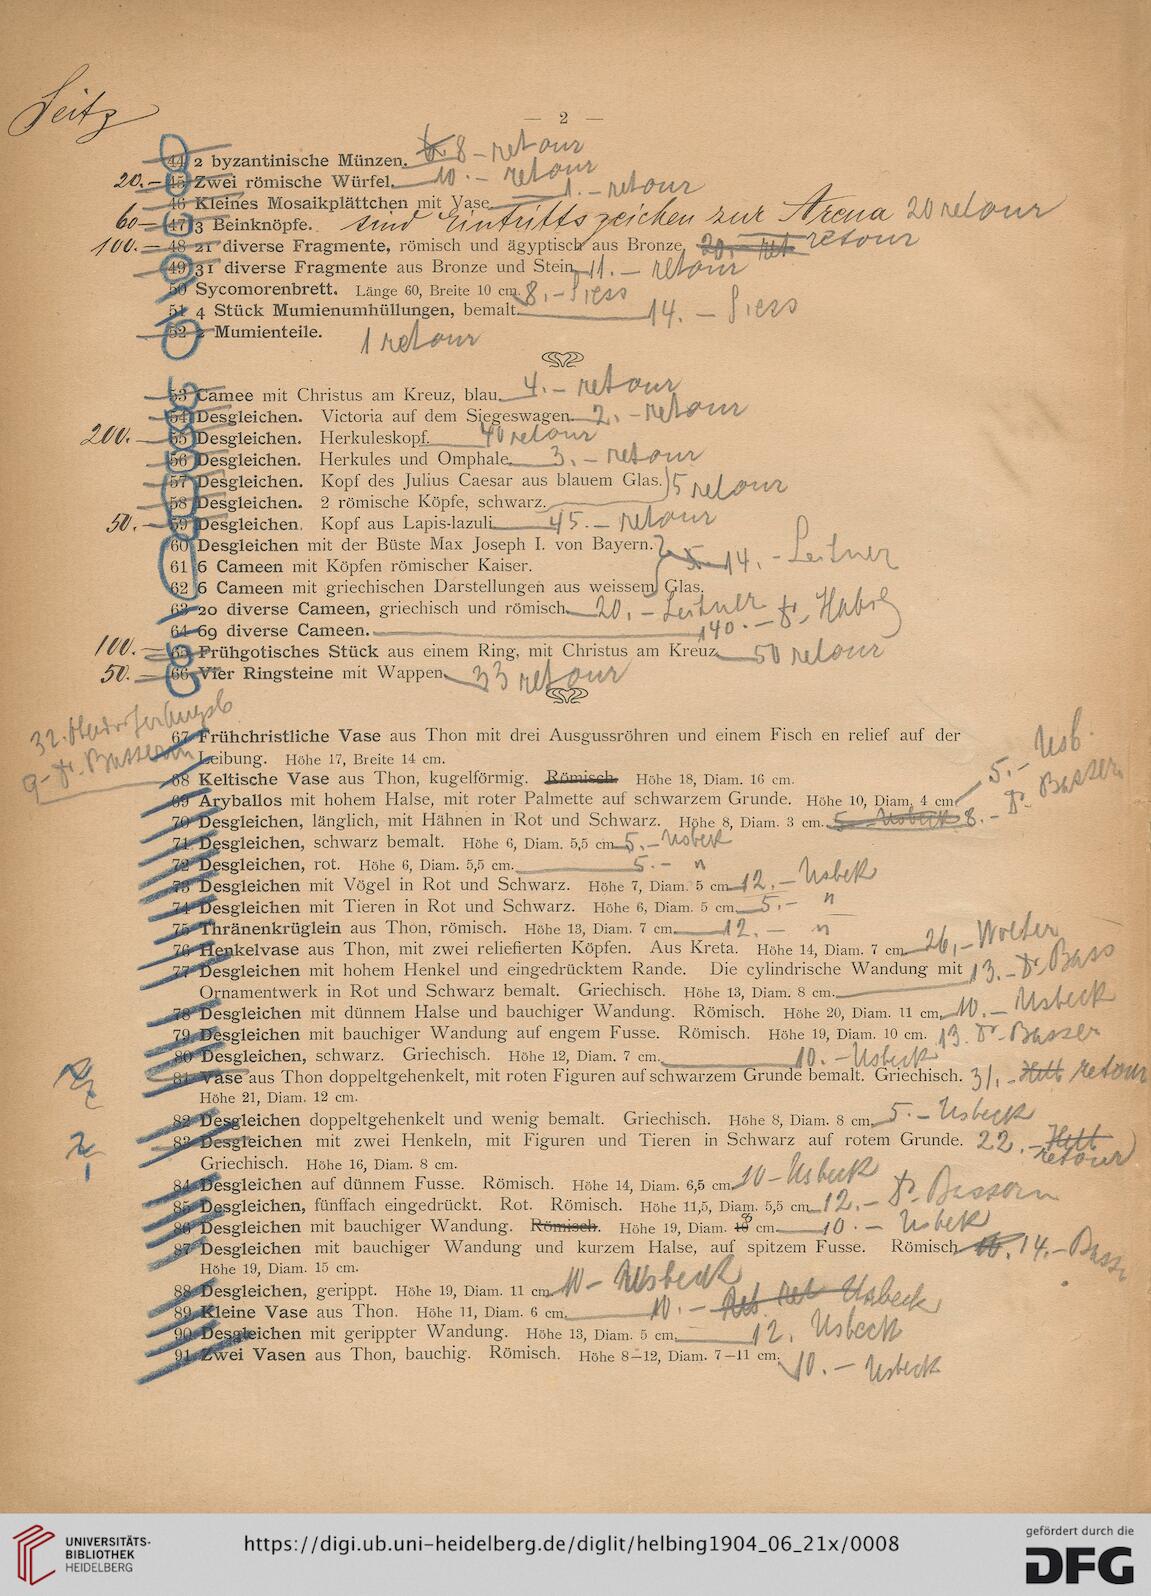 Seitz
— 2 —
44 2 byzantinische Münzen. 8 – retour
20.– 45 Zwei römische Würfel. 10.– retour
46 Kleines Mosaikplättchen mit Vase 1.– retour
60– 47 3 Beinknöpfe. sind Eintrittszeichen zur Arena 20 retour
100.– 48 21 diverse Fragmente, römisch und ägyptisch aus Bronze. 20.– ret retour
49 31 diverse Fragmente aus Bronze und Stein. 11.– retour
50 Sycomorenbrett. Länge 60, Breite 10 cm. 8.– Siess
51 4 Stück Mumienumhüllungen, bemalt. 14.– Siess
52 2 Mumienteile. 1 retour
53 Camee mit Christus am Kreuz, blau. 4.– retour
54 Desgleichen. Victoria auf dem Siegeswagen. 2.– retour
200.– 55 Desgleichen. Herkuleskopf. 40 retour
56 Desgleichen. Herkules und Omphale. 3.– retour
57 Desgleichen. Kopf des Julius Caesar aus blauem Glas. 5 retour
58 Desgleichen. 2 römische Köpfe, schwarz.
50.– 59 Desgleichen. Kopf aus Lapis-lazuli. 45.– retour
60 Desgleichen mit der Büste Max Joseph I. von Bayern.
61 6 Cameen mit Köpfen römischer Kaiser. 5.– 14.– Leitner
62 6 Cameen mit griechischen Darstellungen aus weissem Glas.
63 20 diverse Cameen, griechisch und römisch. 20.– Leitner
64 69 diverse Cameen. 140.– Dr. Habs
100.– 65 Frühgotisches Stück aus einem Ring, mit Christus am Kreuz. 50 retour
50.– 66 Vier Ringsteine mit Wappen. 33 retour
32.
9– Dr. Basserman
67 Frühchristliche Vase aus Thon mit drei Ausgussröhren und einem Fisch en relief auf der
Leibung. Höhe 17, Breite 14 cm.
68 Keltische Vase aus Thon, kugelförmig. Römisch. Höhe 18, Diam. 16 cm.
69 Aryballos mit hohem Halse, mit roter Palmette auf schwarzem Grunde. Höhe 10, Diam. 4 cm. 5.– Usb.
70 Desgleichen, länglich, mit Hähnen in Rot und Schwarz. Höhe 8, Diam. 3 cm. 5 – Usbeck 8.– Dr. Basser
71 Desgleichen, schwarz bemalt. Höhe 6, Diam. 5,5 cm. 5.– Usbeck
72 Desgleichen, rot. Höhe 6, Diam. 5,5 cm. 5.– "
73 Desgleichen mit Vögel in Rot und Schwarz. Höhe 7, Diam. 5 cm. 12.– Usbeck
74 Desgleichen mit Tieren in Rot und Schwarz. Höhe 6, Diam. 5 cm. 5.– "
75 Thränenkrüglein aus Thon, römisch. Höhe 13, Diam. 7 cm. 12.– "
76 Henkelvase aus Thon, mit zwei reliefierten Köpfen. Aus Kreta. Höhe 14, Diam. 7 cm. 26.– Wolter
77 Desgleichen mit hohem Henkel und eingedrücktem Rande. Die cylindrische Wandung mit 13.– Dr. Bass
Ornamentwerk in Rot und Schwarz bemalt. Griechisch. Höhe 13, Diam. 8 cm.
78 Desgleichen mit dünnem Halse und bauchiger Wandung. Römisch. Höhe 20, Diam. 11 cm. 10.– Usbeck
79 Desgleichen mit bauchiger Wandung auf engem Fusse. Römisch. Höhe 19, Diam. 10 cm. 13. Dr. Basser
80 Desgleichen, schwarz. Griechisch. Höhe 12, Diam. 7 cm. 10.– Usbeck
81 Vase aus Thon doppeltgehenkelt, mit roten Figuren auf schwarzem Grunde bemalt. Griechisch. 31.– Hett retour
Höhe 21, Diam. 12 cm.
82 Desgleichen doppeltgehenkelt und wenig bemalt. Griechisch. Höhe 8, Diam. 8 cm. 5.– Usbeck
83 Desgleichen mit zwei Henkeln, mit Figuren und Tieren in Schwarz auf rotem Grunde. 22.– Hett retour
Griechisch. Höhe 16, Diam. 8 cm.
84 Desgleichen auf dünnem Fusse. Römisch. Höhe 14, Diam. 6,5 cm. 10 – Usbeck
85 Desgleichen, fünffach eingedrückt. Rot. Römisch. Höhe 11,5, Diam. 5,5 cm. 12.– Dr. Basserm
86 Desgleichen mit bauchiger Wandung. Römisch. Höhe 19, Diam. 10 8 cm. 10.– Usbeck
87 Desgleichen mit bauchiger Wandung und kurzem Halse, auf spitzem Fusse. Römisch. 10. 14.– Bass
Höhe 19, Diam. 15 cm.
88 Desgleichen, gerippt. Höhe 19, Diam. 11 cm. 10 – Usbeck
89 Kleine Vase aus Thon. Höhe 11, Diam. 6 cm. 10.– Usbeck
90 Desgleichen mit gerippter Wandung. Höhe 13, Diam. 5 cm. 12. Usbeck
91 Zwei Vasen aus Thon, bauchig. Römisch. Höhe 8–12, Diam. 7–11 cm. 10.– Usbeck
UNIVERSITÄTS-
BIBLIOTHEK
HEIDELBERG
https://digi.ub.uni-heidelberg.de/diglit/helbing1904_06_21x/0008
gefördert durch die
DFG